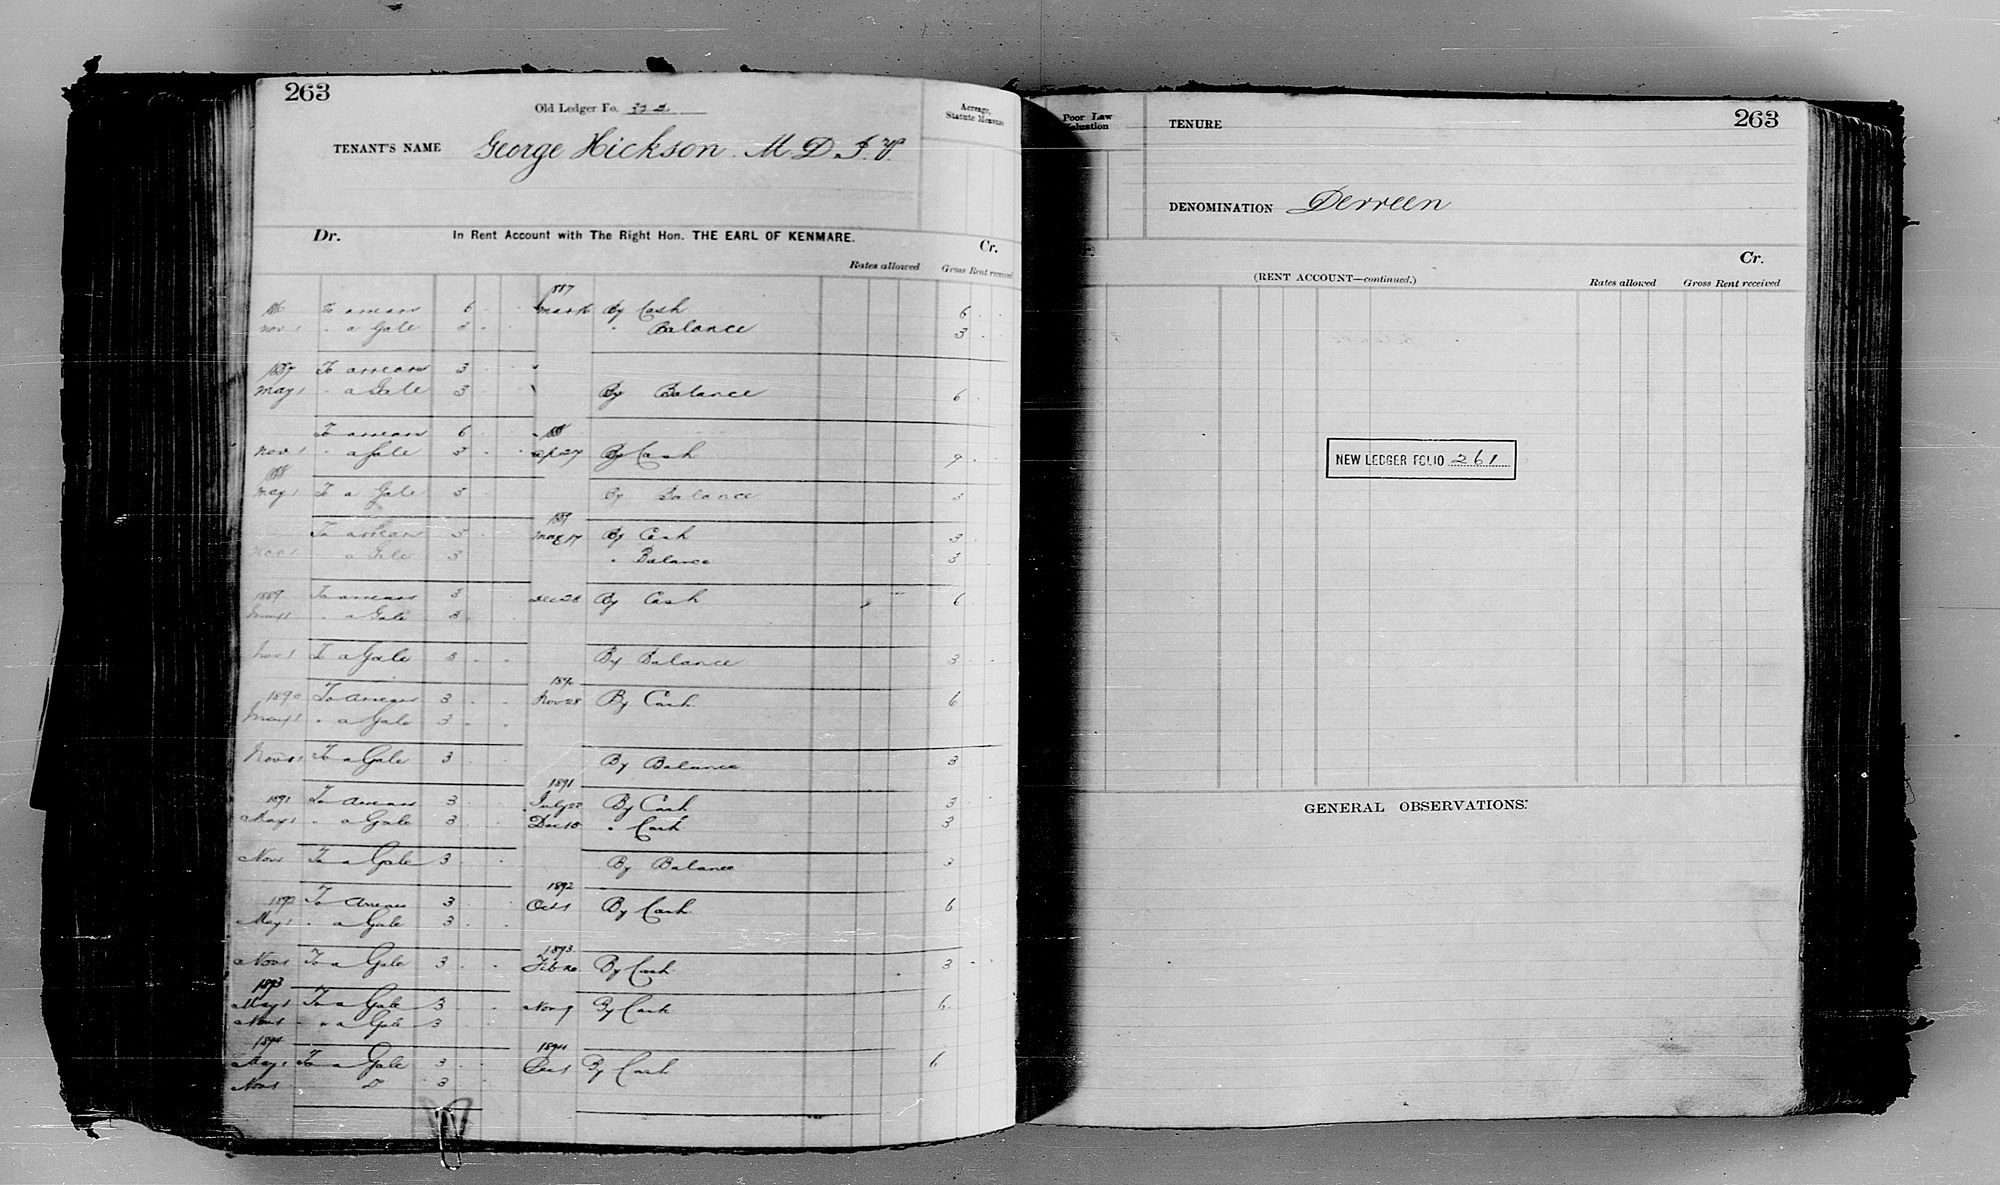 263
Old Ledger Fo.
Acreage, Statute Measure
TENANT'S NAME George Hickson. M D. J. P.
Dr. In Rent Account with The Right Hon. THE EARL OF KENMARE. Cr.
Rates allowed Gross Rent received
1887
1886 To arrears 6 By Cash 6
Nov 1 " a Gale 3 " Balance 3
1887 To arrears 3
May 1 " a Gale 3 By Balance 6
To arrears 6 1888
Nov 1 " a Gale 3 Ap 27 By Cash 9
1888
May 1 To a Gale 3 By Balance 3
1889
To arrears 3 May 17 By Cash 3
Nov 1 " a Gale 3 " Balance 3
1889 To arrears 3 Dec 28 By Cash 6
May 1 " a Gale 3
Nov 1 To a Gale 3 By Balance 3
1890
1890 To arrears 3 Nov 28 By Cash 6
May 1 " a Gale 3
Nov 1 To a Gale 3 By Balance 3
1891
1891 To arrears 3 July 22 By Cash 3
May 1 " a Gale 3 Dec 18 " Cash 3
Nov 1 To a Gale 3 By Balance 3
1892
1892 To Arrears 3 Oct 1 By Cash 6
May 1 " a Gale 3
1893
Nov 1 To a Gale 3 Feb 20 By Cash 3
1893
May 1 To a Gale 3 Nov 9 By Cash 6
Nov 1 " a Gale 3
1894 1894
May 1 To a Gale 3 Dec 1 By Cash 6
Nov 1 Do 3
Poor Law Valuation
TENURE
263
DENOMINATION Derreen
Cr.
(RENT ACCOUNT—continued.)
Rates allowed Gross Rent received
NEW LEDGER FOLIO 261
GENERAL OBSERVATIONS.